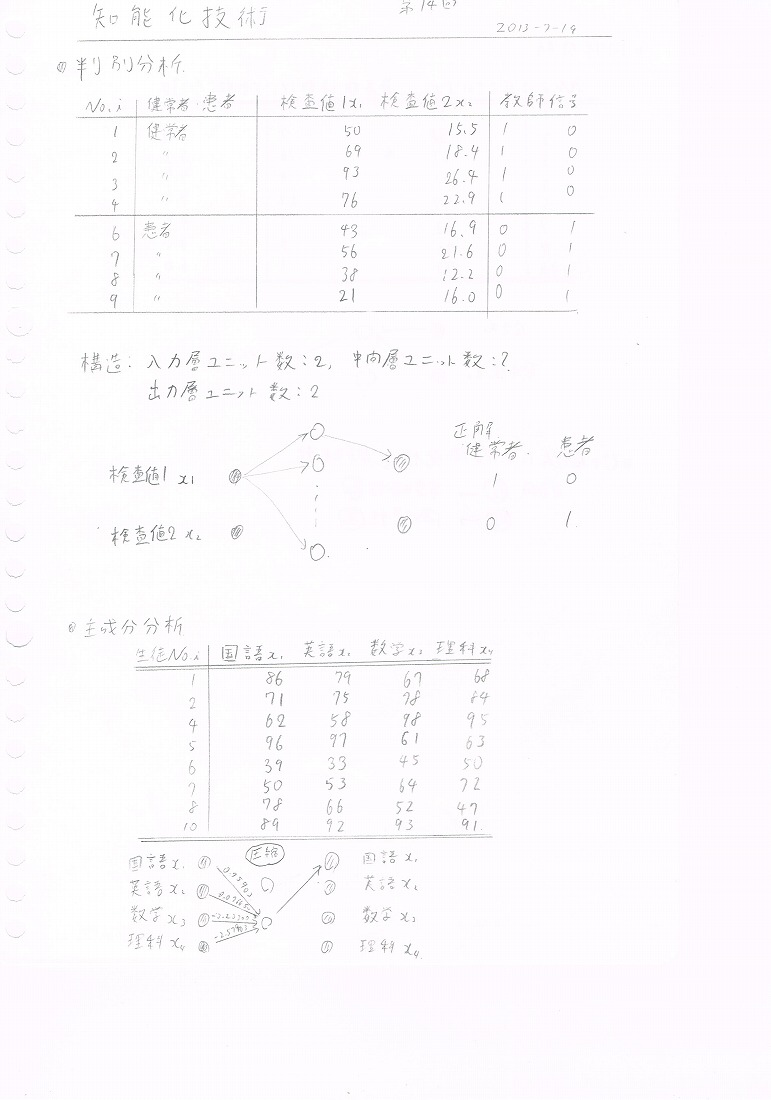 知能化技術 第14回
2013-7-19
判別分析
No.i 健常者・患者 検査値1x₁ 検査値2x₂ 教師信号
1 健常者 50 15.5 1 0
2 〃 69 18.4 1 0
3 〃 93 26.4 1 0
4 〃 76 22.9 1 0
6 患者 43 16.9 0 1
7 〃 56 21.6 0 1
8 〃 38 12.2 0 1
9 〃 21 16.0 0 1
構造: 入力層ユニット数:2, 中間層ユニット数:?
出力層ユニット数:2
正解
健常者. 患者
検査値1 x₁ 1 0
検査値2 x₂ 0 1
主成分分析
生徒No.i 国語x₁ 英語x₂ 数学x₃ 理科x₄
1 86 79 67 68
2 71 75 78 84
4 62 58 98 95
5 96 97 61 63
6 39 33 45 50
7 50 53 64 72
8 78 66 52 47
10 89 92 93 91
圧縮
国語x₁ 国語x₁
英語x₂ 英語x₂
数学x₃ 数学x₃
理科x₄ 理科x₄